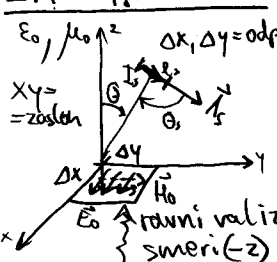 ε₀, μ₀
z
Δx, Δy = odp
XY =
= zaslon
I_s
l_s
θ
θ_s
1_s
Δy
Δx
y
H₀
E₀
x
ravni val iz
smeri (-z)